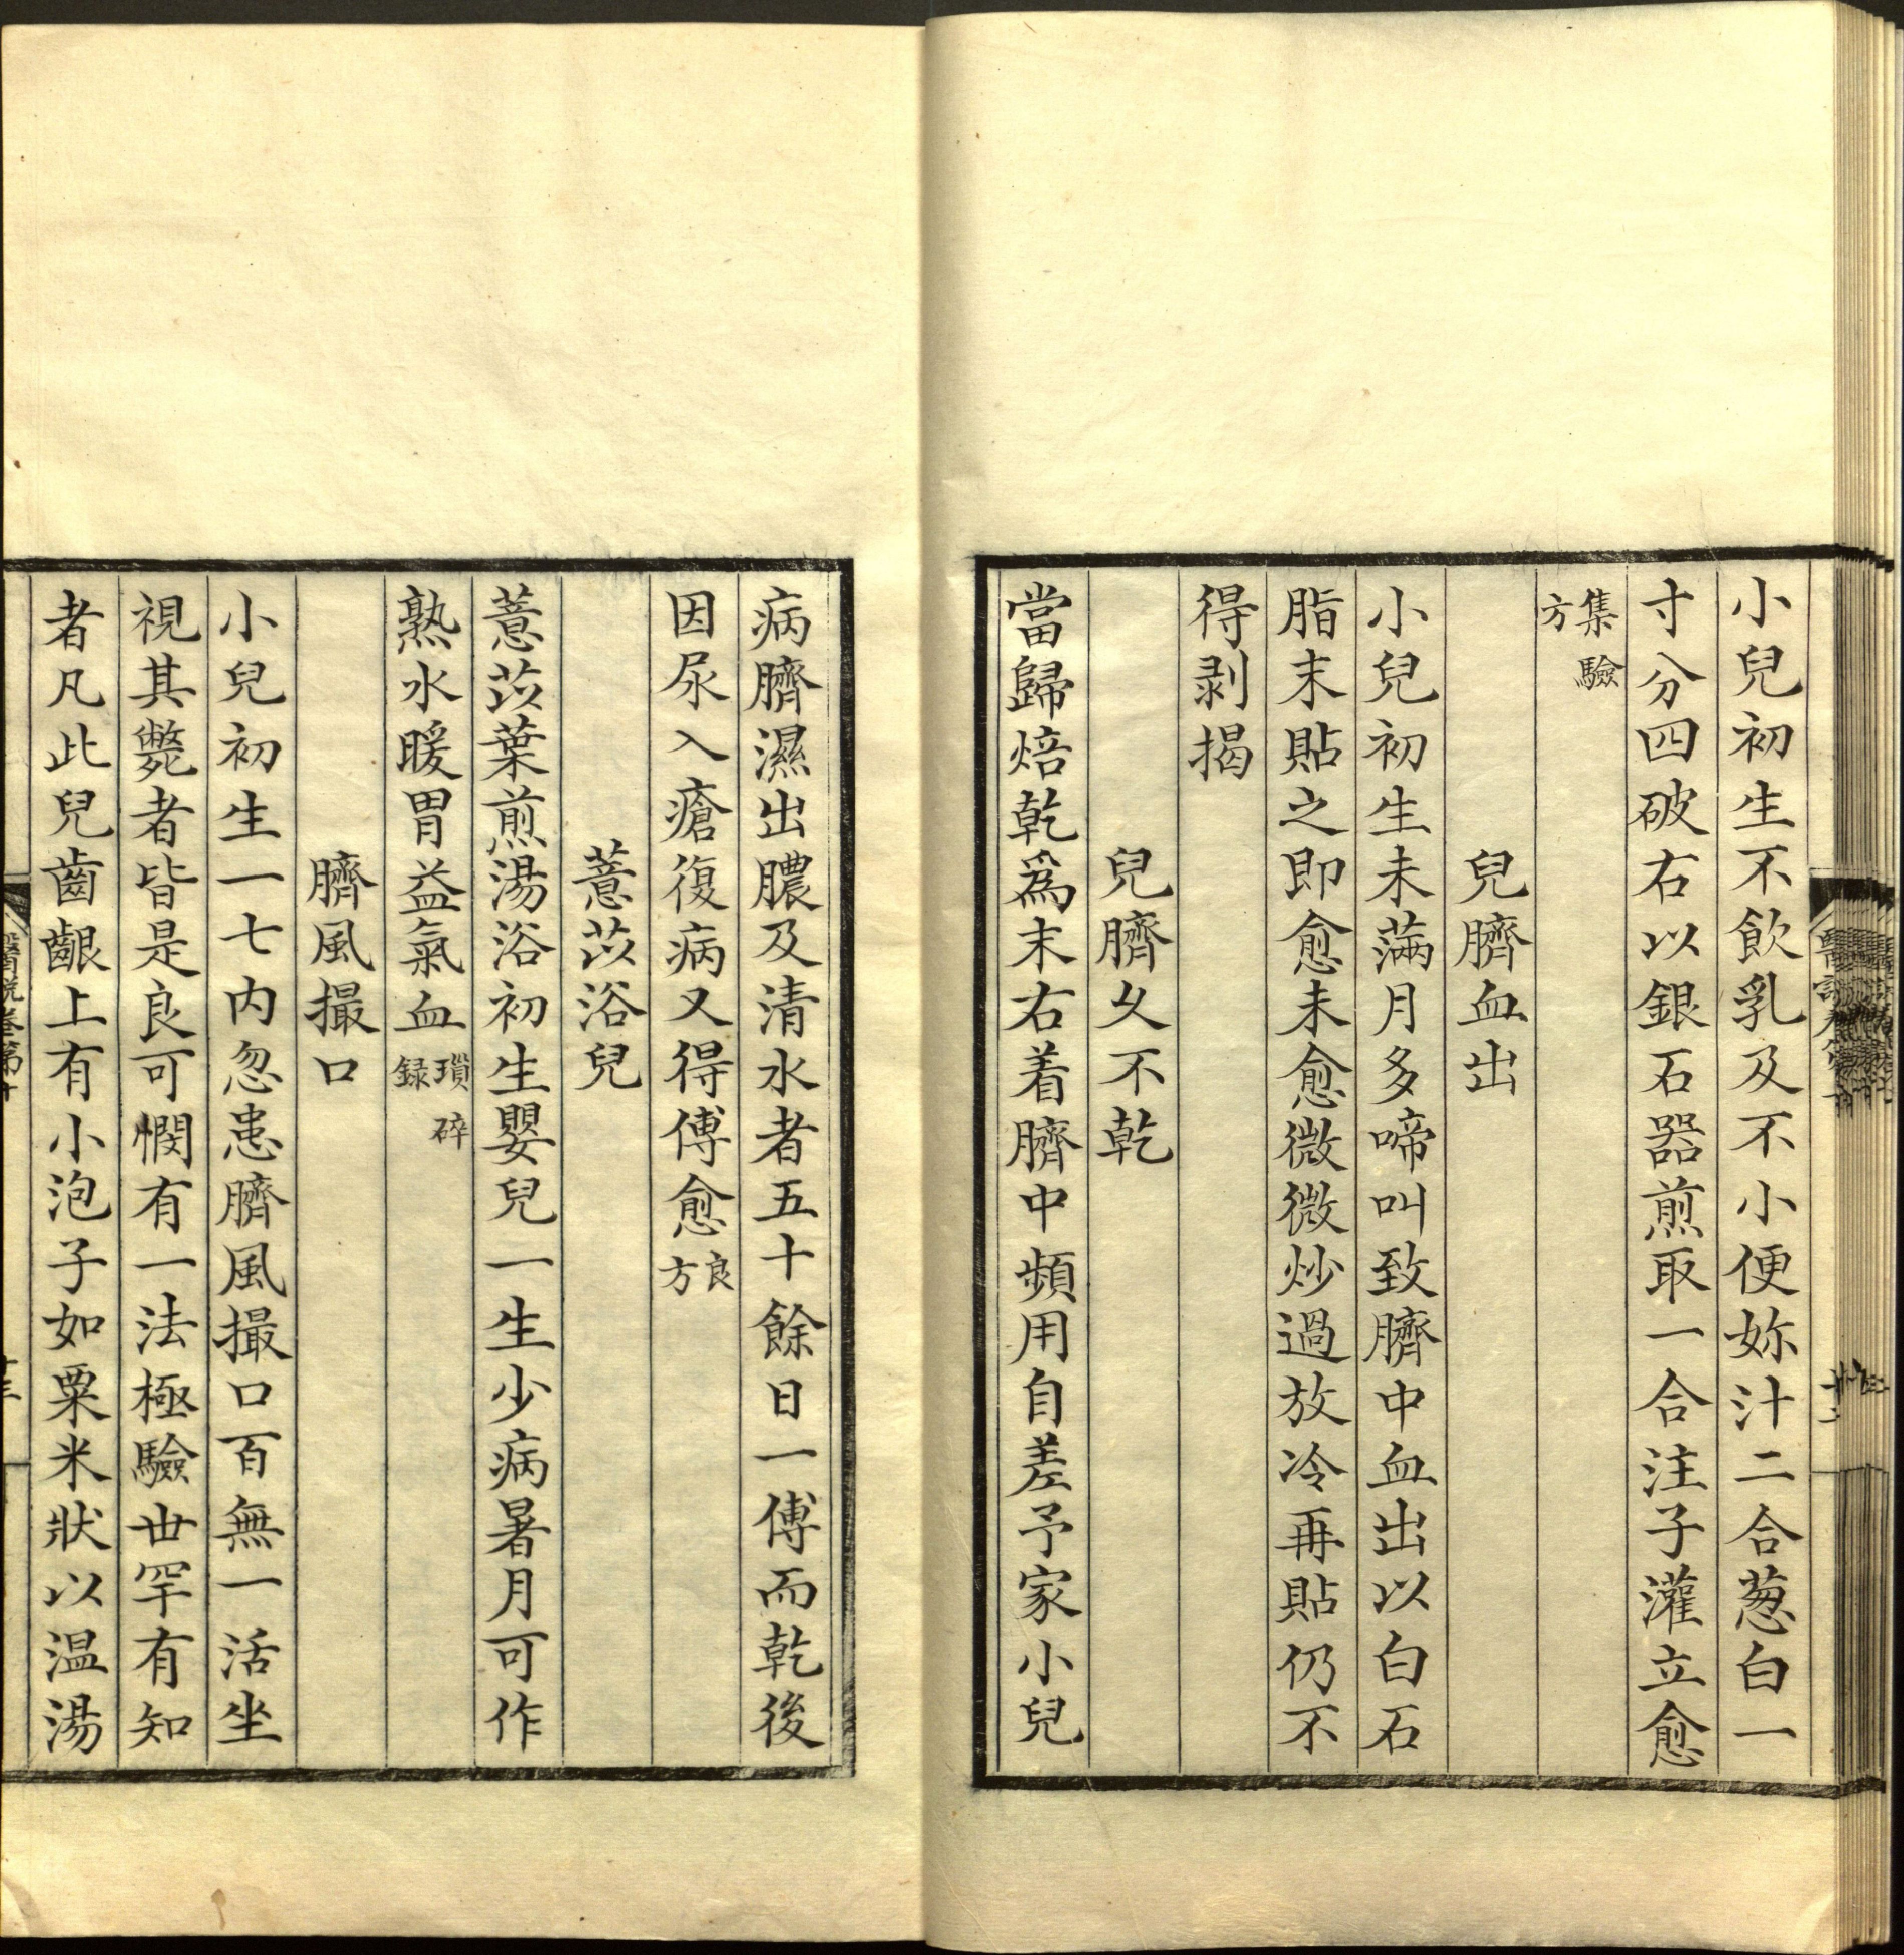 小兒初生不飲乳及不小便妳汁二合葱白一
寸分四破右以銀石器煎取一合注子灌立愈
集驗方
兒臍血出
小兒初生未滿月多啼叫致臍中血出以白石
脂末貼之即愈未愈微微炒過放冷再貼仍不
得剥揭
兒臍久不乾
當歸焙乾爲末右着臍中頻用自差予家小兒
病臍濕出膿及清水者五十餘日一傅而乾後
因尿入瘡復病又得傅愈良方
薏苡浴兒
薏苡葉煎湯浴初生嬰兒一生少病暑月可作
熟水暖胃益氣血瑣碎録
臍風撮口
小兒初生一七内忽患臍風撮口百無一活坐
視其斃者皆是良可憫有一法極驗丗罕有知
者凡此兒齒齦上有小泡子如粟米狀以温湯
醫説卷第十